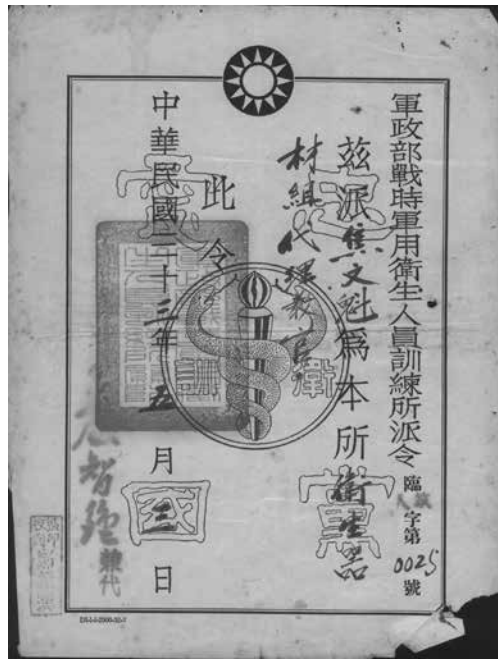 軍政部戰時軍用衛生人員訓練所派令
臨
人
字第0025號
茲派焦文魁為本所衛生器
材組代理教官
此令
中華民國三十三年五月三日
兼代
衛訓
黨
國